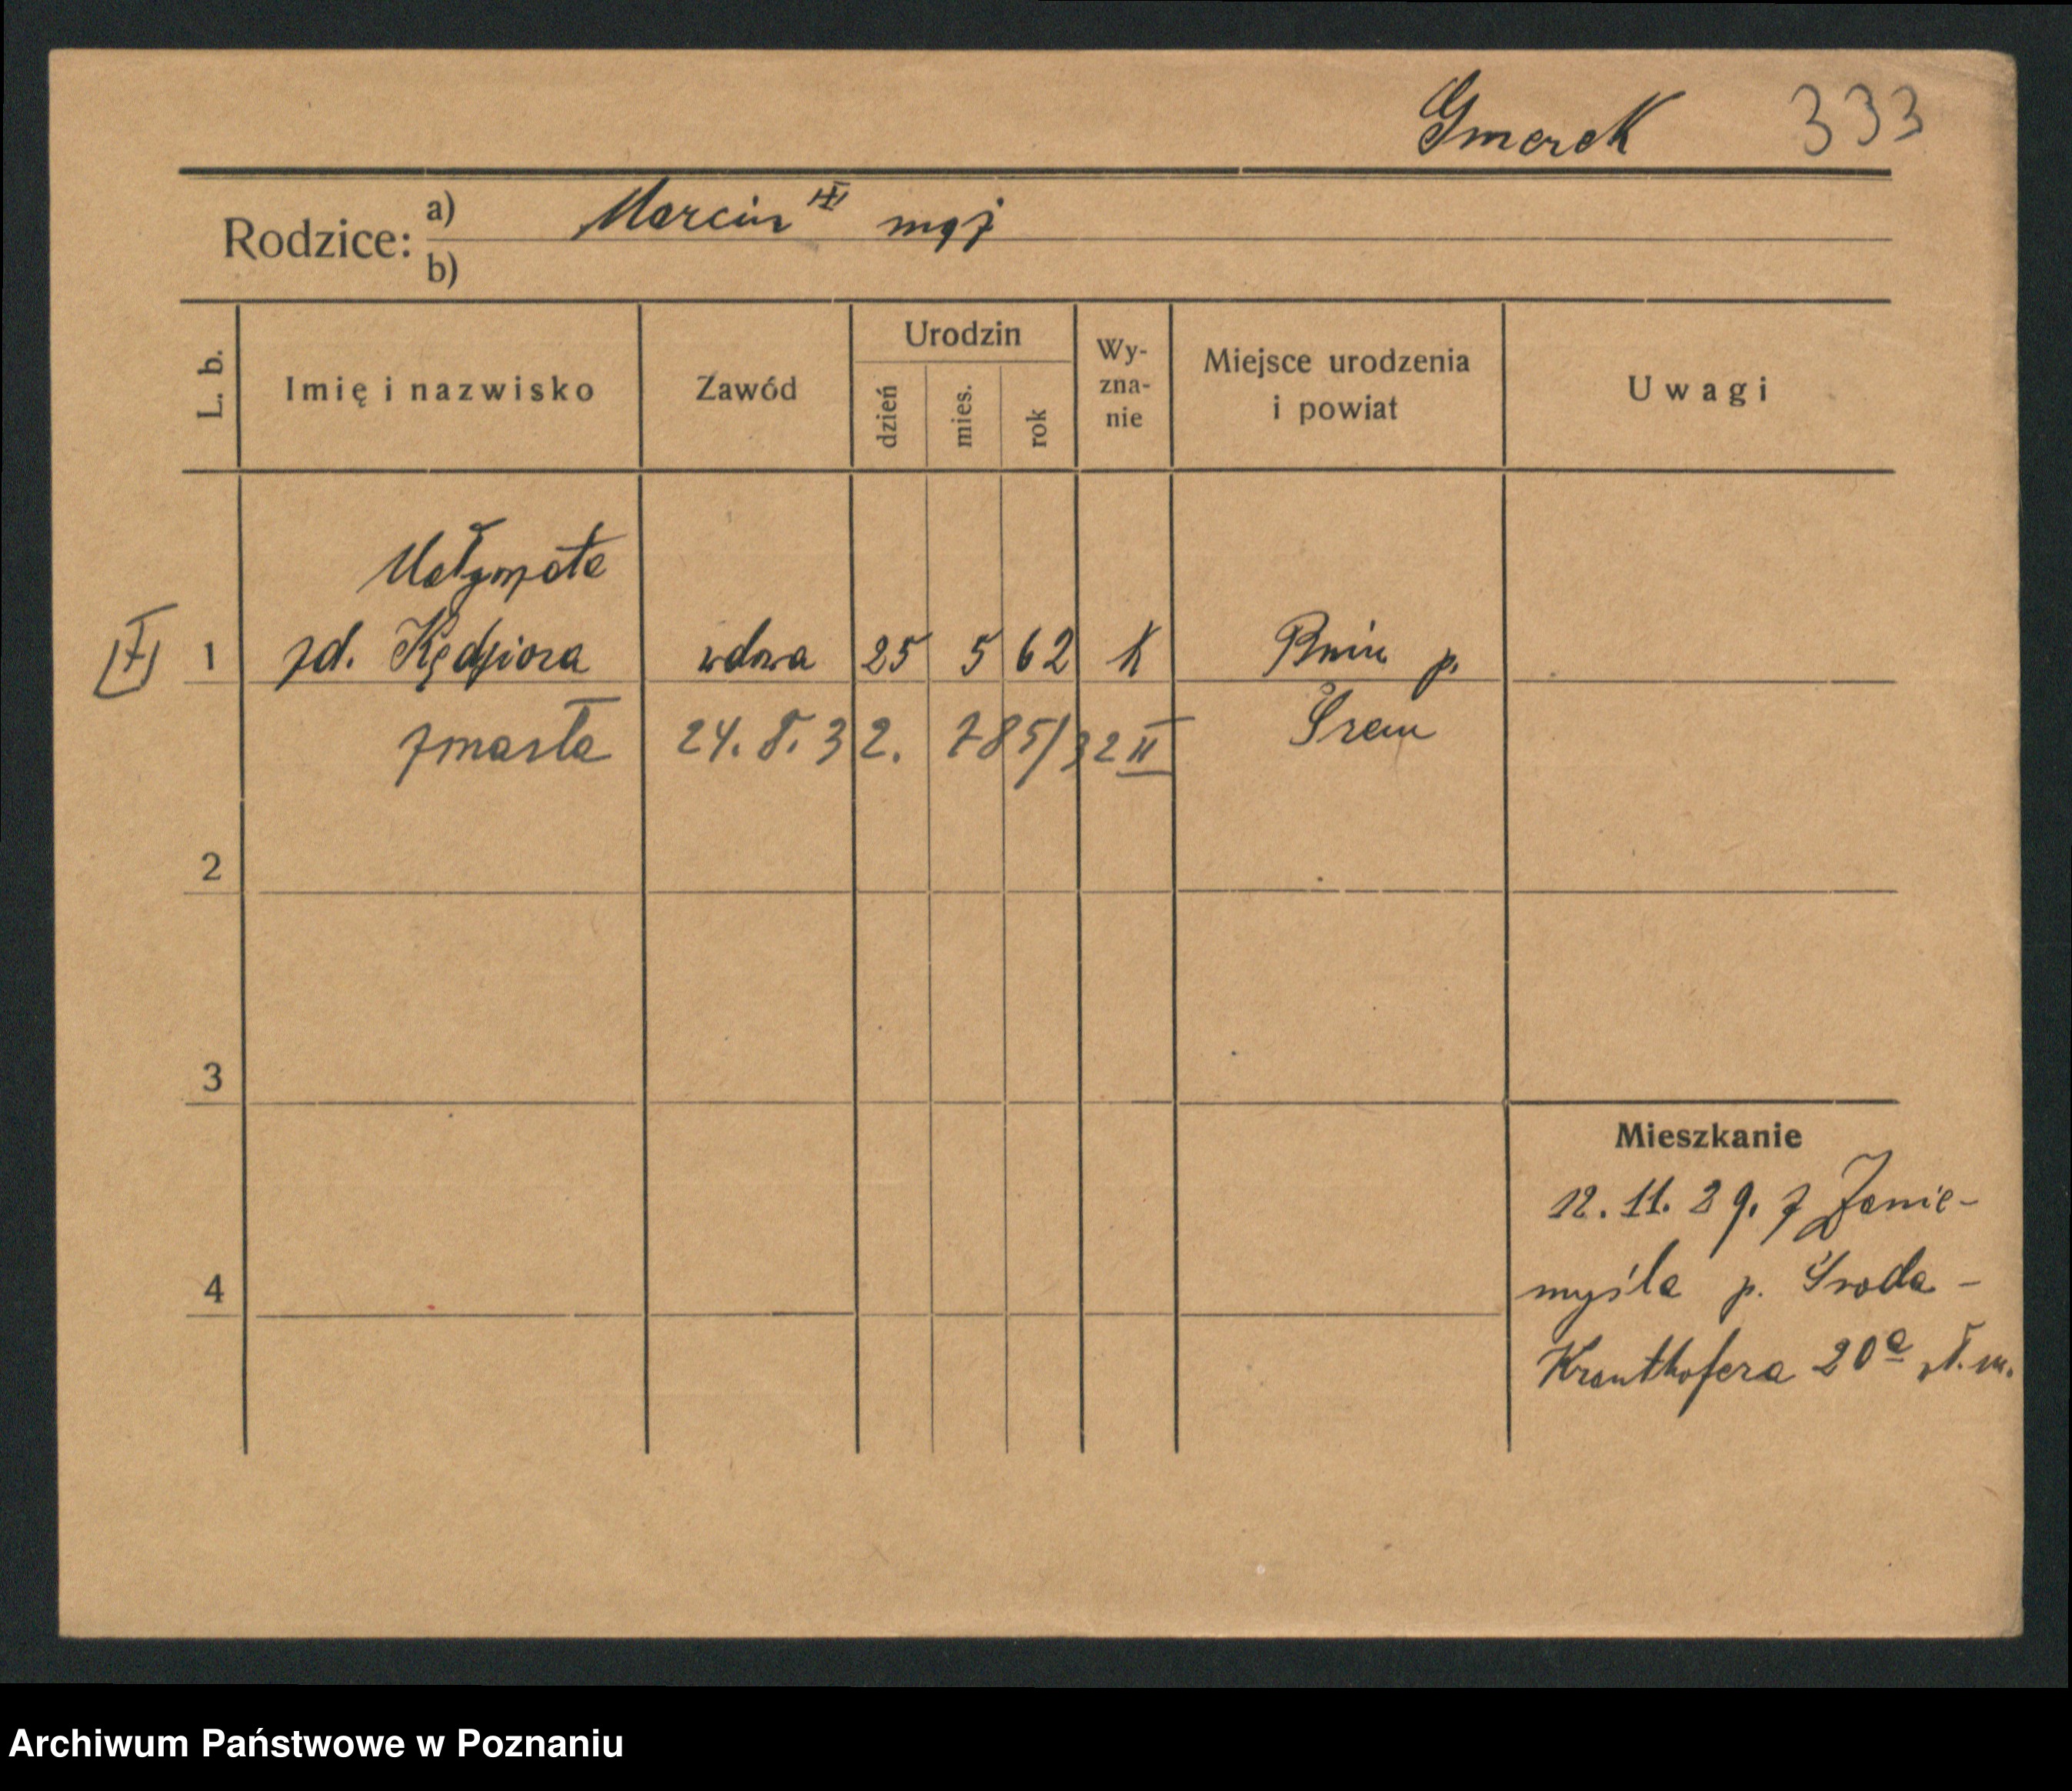 Gmerek 333
Rodzice: a) Marcin mąż
b)
L. b.
Imię i nazwisko
Zawód
Urodzin
dzień
mies.
rok
Wy-
zna-
nie
Miejsce urodzenia
i powiat
Uwagi
Małgorzata
1 zd. Kędziora wdowa 25 5 62 k Bnin p.
zmarła 24. 8. 32. 785/32 II Śrem
2
3
4
Mieszkanie
12. 11. 29. z Zanie-
myśla p. Środa -
Krauthofera 20a
Archiwum Państwowe w Poznaniu